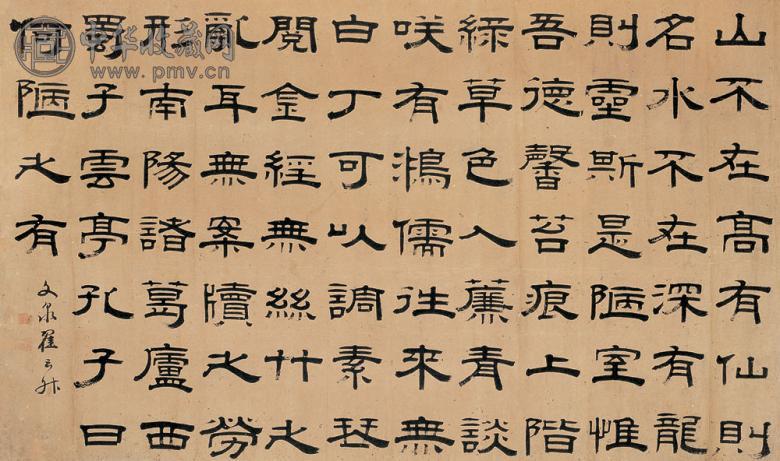 山不在高有仙則
名水不在深有龍
則靈斯是陋室惟
吾德馨苔痕上階
綠草色入薕青談
咲有鴻儒往來無
白丁可以調素琴
閱金經無絲竹之
亂耳無案牘之勞
形南陽諸葛廬西
蜀子雲亭孔子曰
何陋之有
文泉翟云升
中华收藏网
www.pmv.cn